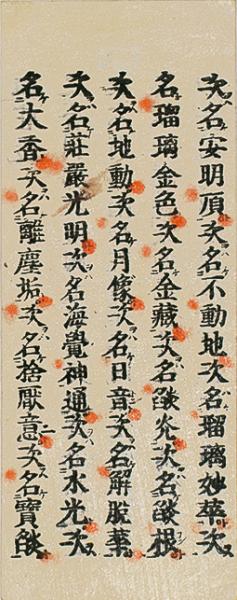 次名安明頂次名不動地次名瑠璃妙華次
名瑠璃金色次名金藏次名燄光次名燄根
次名地動次名月像次名日音次名解脫華
次名莊嚴光明次名海覺神通次名水光次
名大香次名離塵垢次名捨厭意次名寶燄